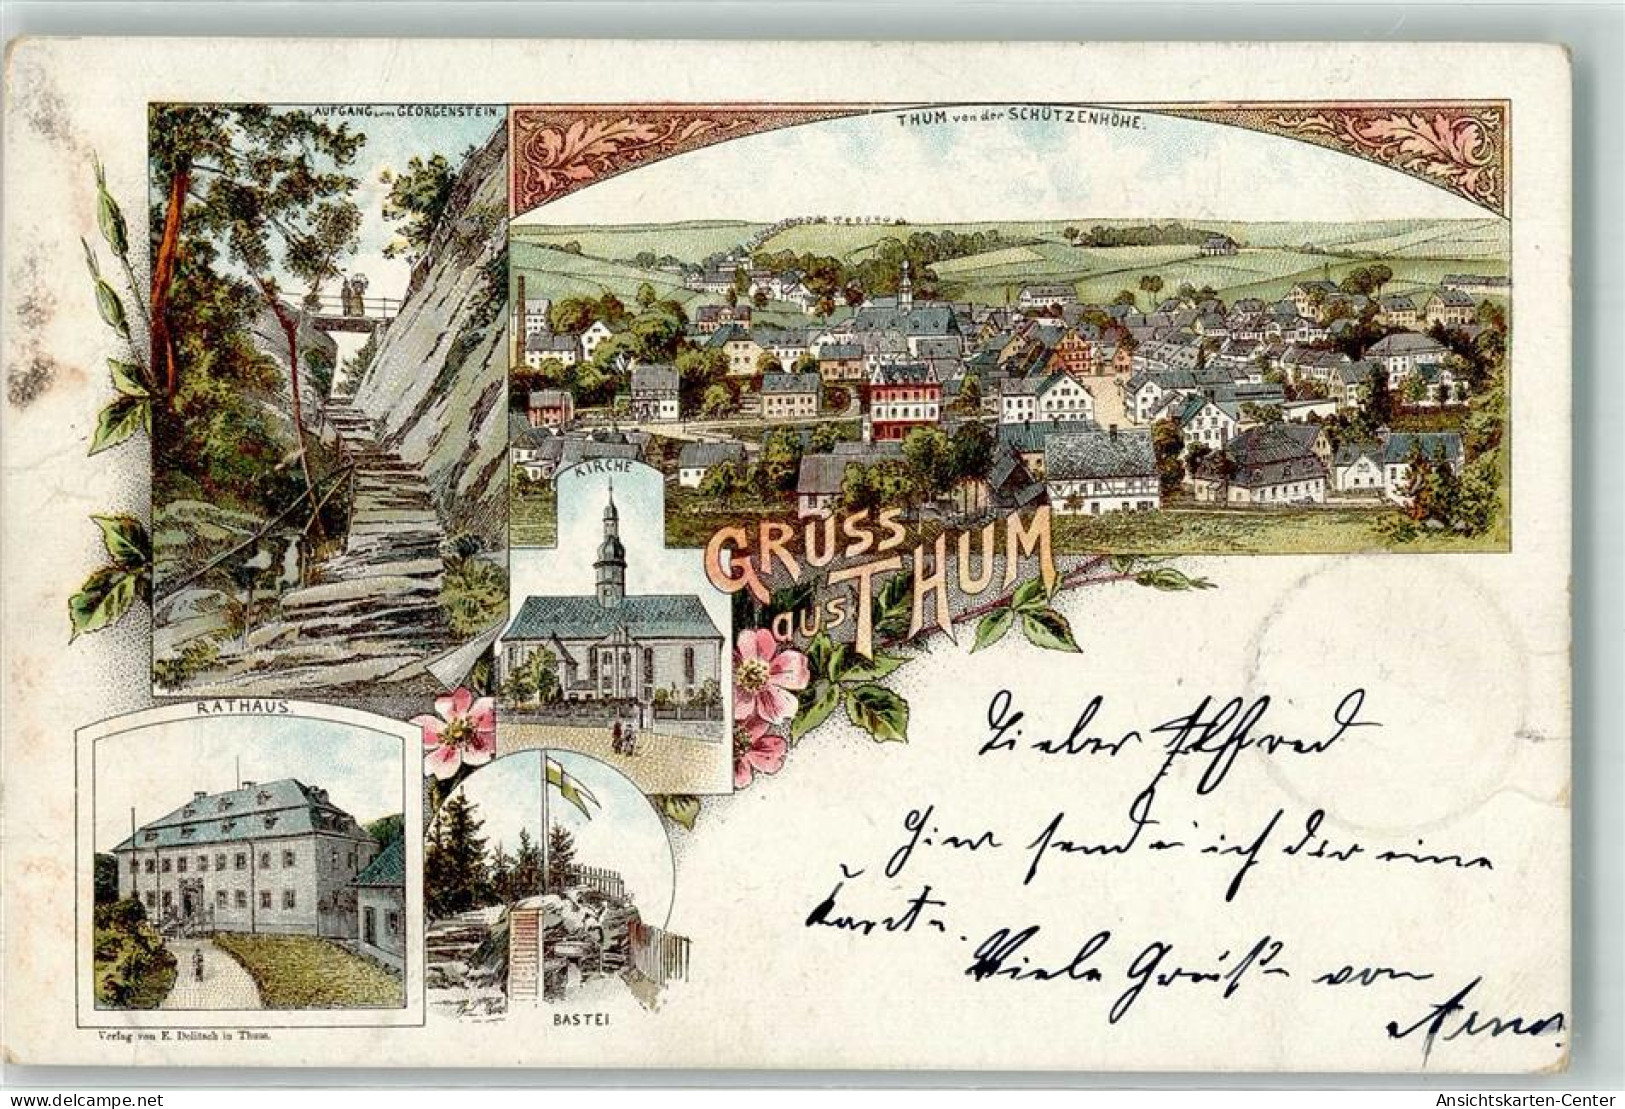 AUFGANG zum GEORGENSTEIN
THUM von der SCHÜTZENHÖHE.
KIRCHE
GRUSS
aus THUM
RATHAUS.
BASTEI
Lieber Alfred
Hier sende ich dir eine
Karte.
Viele Grüße von
Arno.
Verlag von E. Dolitsch in Thum.
www.ansichtskartenversand.com
Ansichtskarten-Center